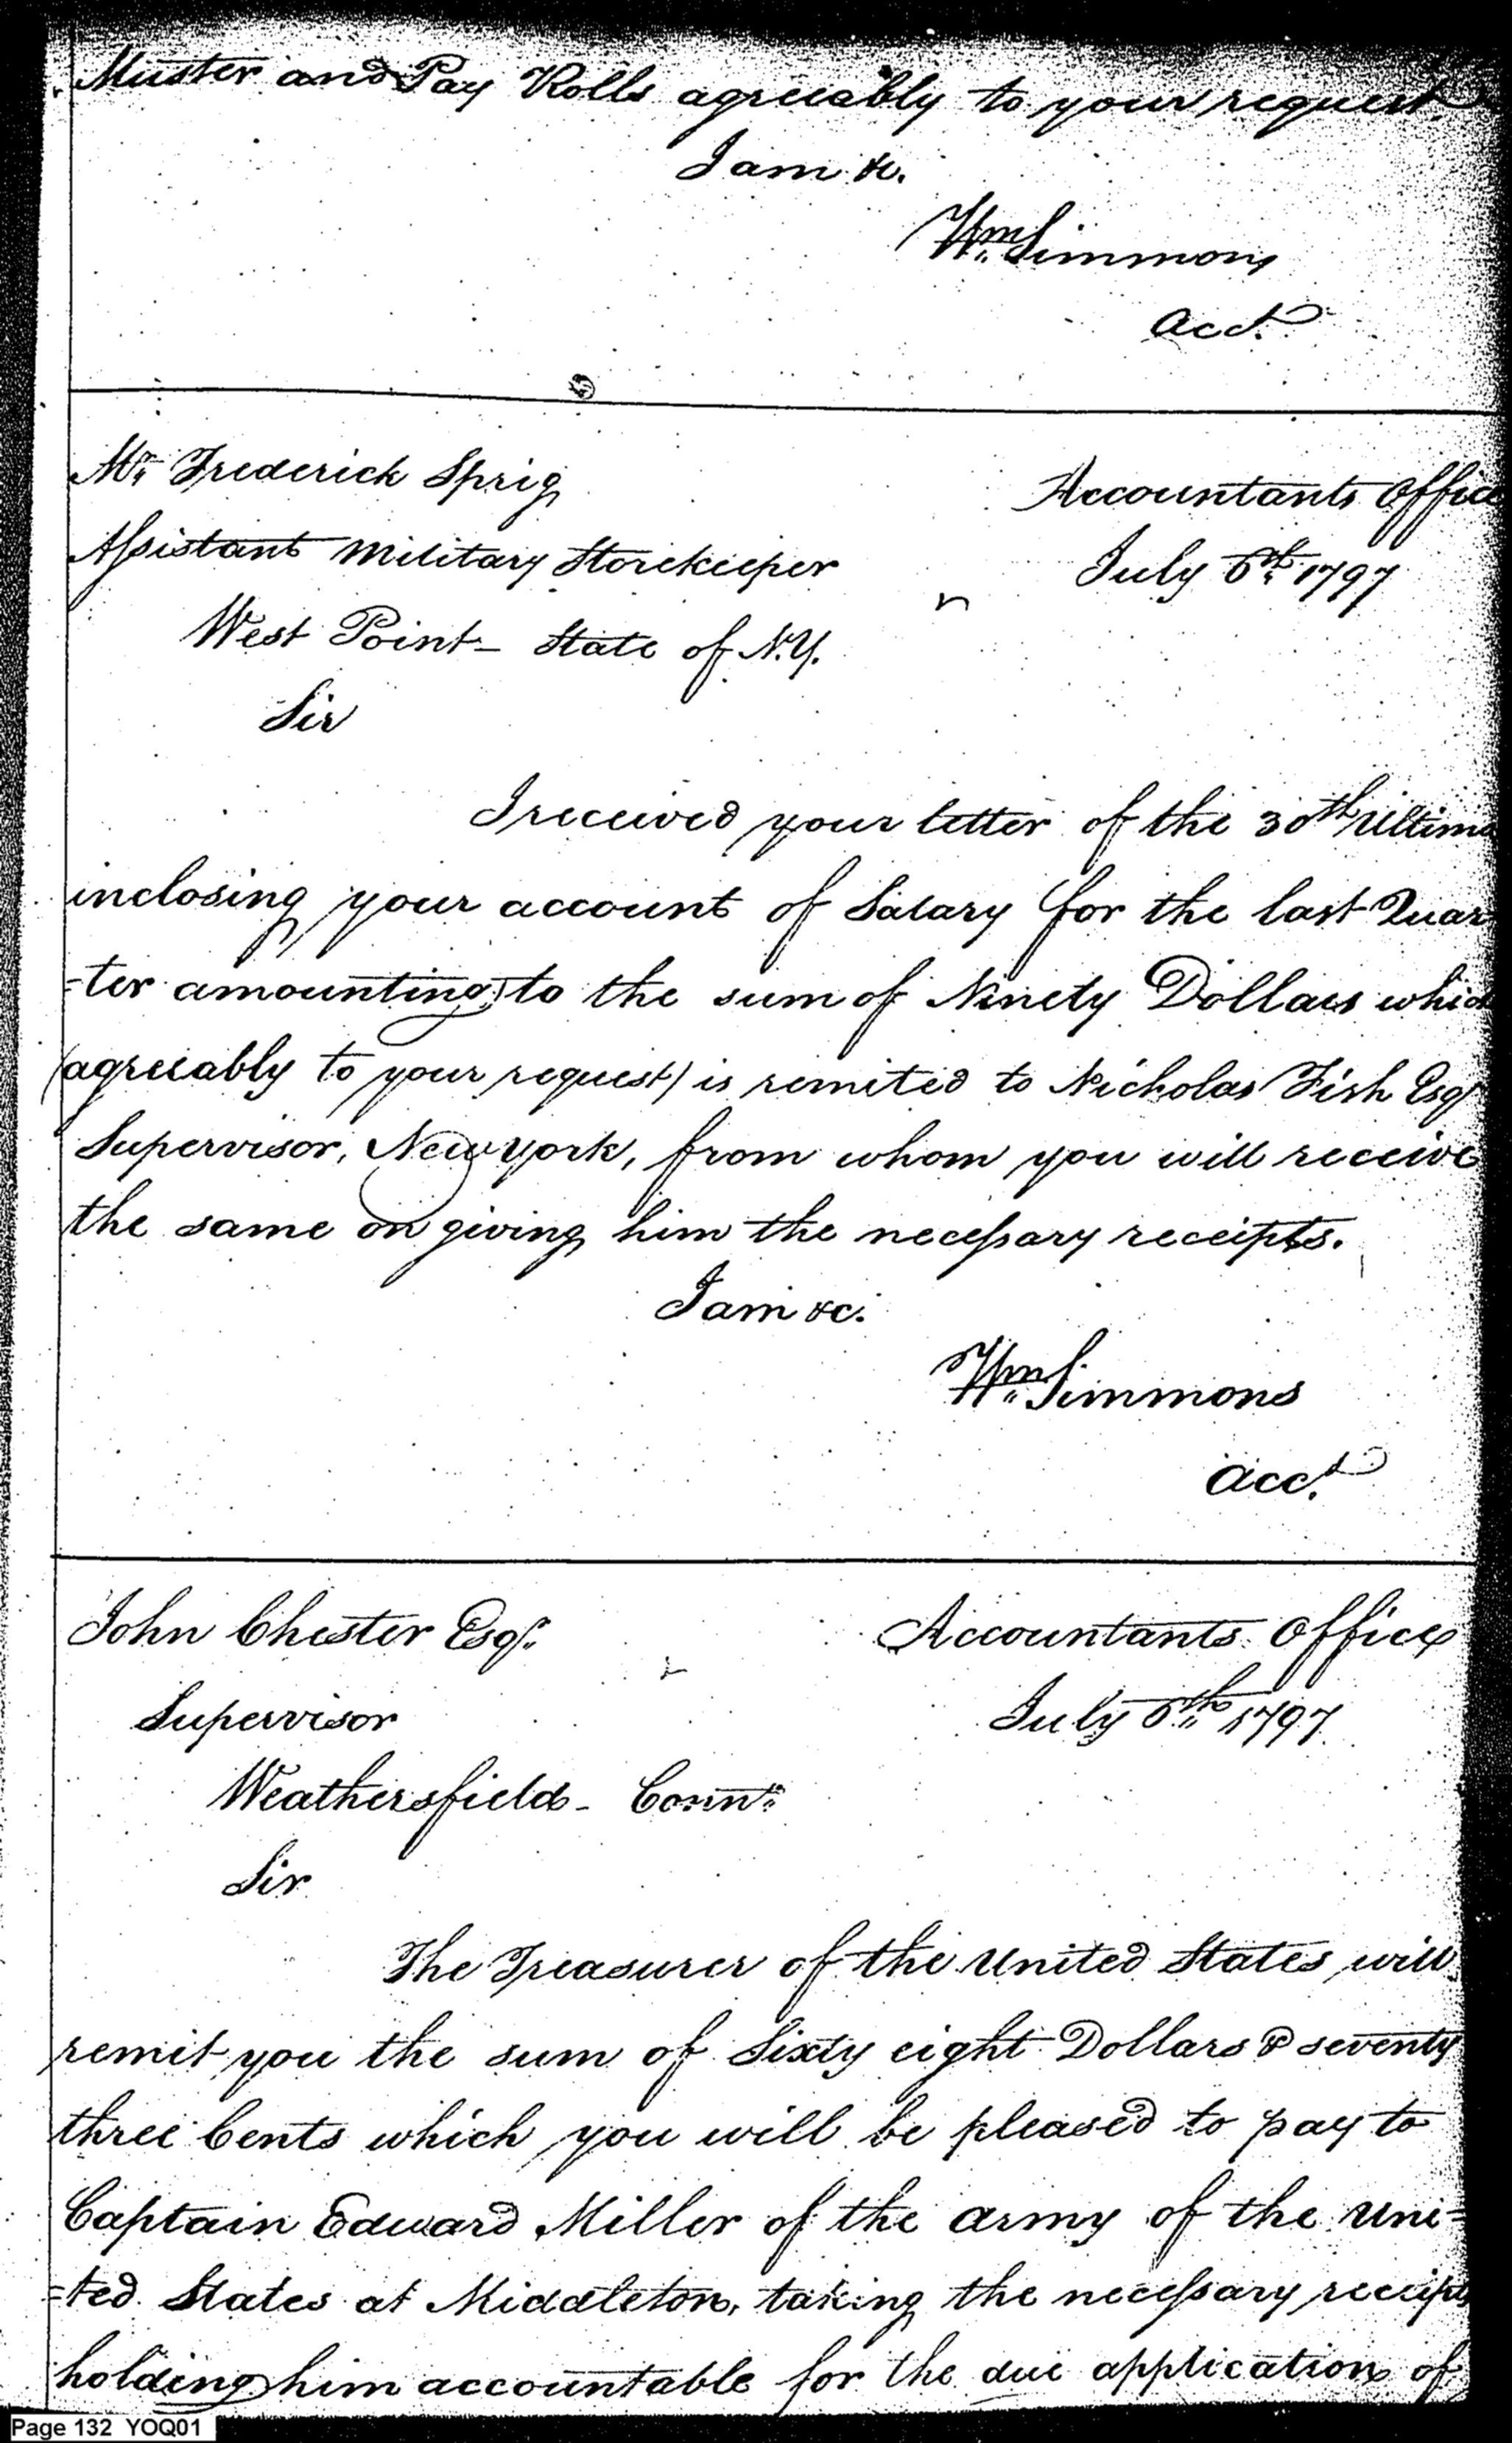 Muster and Pay Rolls agreeably to your request.
I am &c.
Wm. Simmons
Acct.
Mr. Frederick Sprig
Assistant Military Storekeeper
West Point - State of N.Y.
Accountants Office
July 6th. 1797
Sir
I received your letter of the 30th Ultimo
inclosing your account of Salary for the last Quar
-ter amounting to the sum of Ninety Dollars which
(agreeably to your request) is remited to Nicholas Fish Esqr
Supervisor, New York, from whom you will receive
the same on giving him the necessary receipts.
I am &c.
Wm. Simmons
Acct.
John Chester Esqr.
Supervisor
Weathersfield - Connt.
Accountants Office
July 6th. 1797.
Sir
The Treasurer of the United States will
remit you the sum of Sixty eight Dollars & seventy
three Cents which you will be pleased to pay to
Captain Edward Miller of the Army of the Uni-
-ted States at Middleton, taking the necessary receipts
holding him accountable for the due application of
Page 132 YOQ01